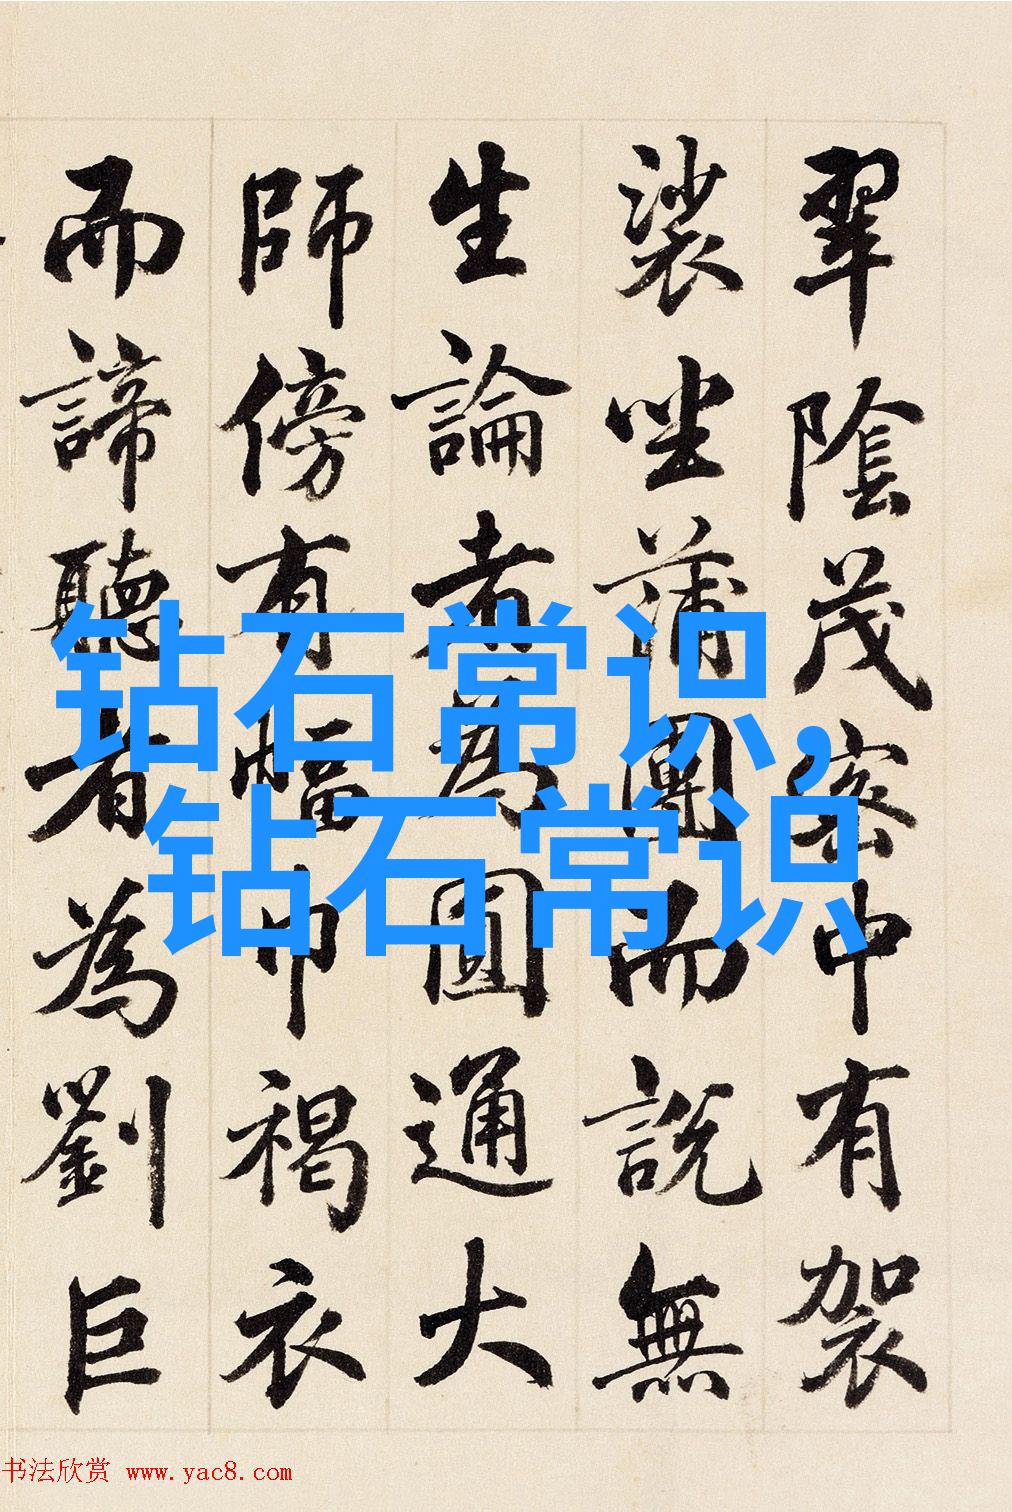 翠陰茂密中有袈
裟坐蒲團而說無
生論者為圓通大
師傍有幅巾褐衣
而諦聽者為劉巨
钻石常识,
钻石常识
书法欣赏 www.yac8.com